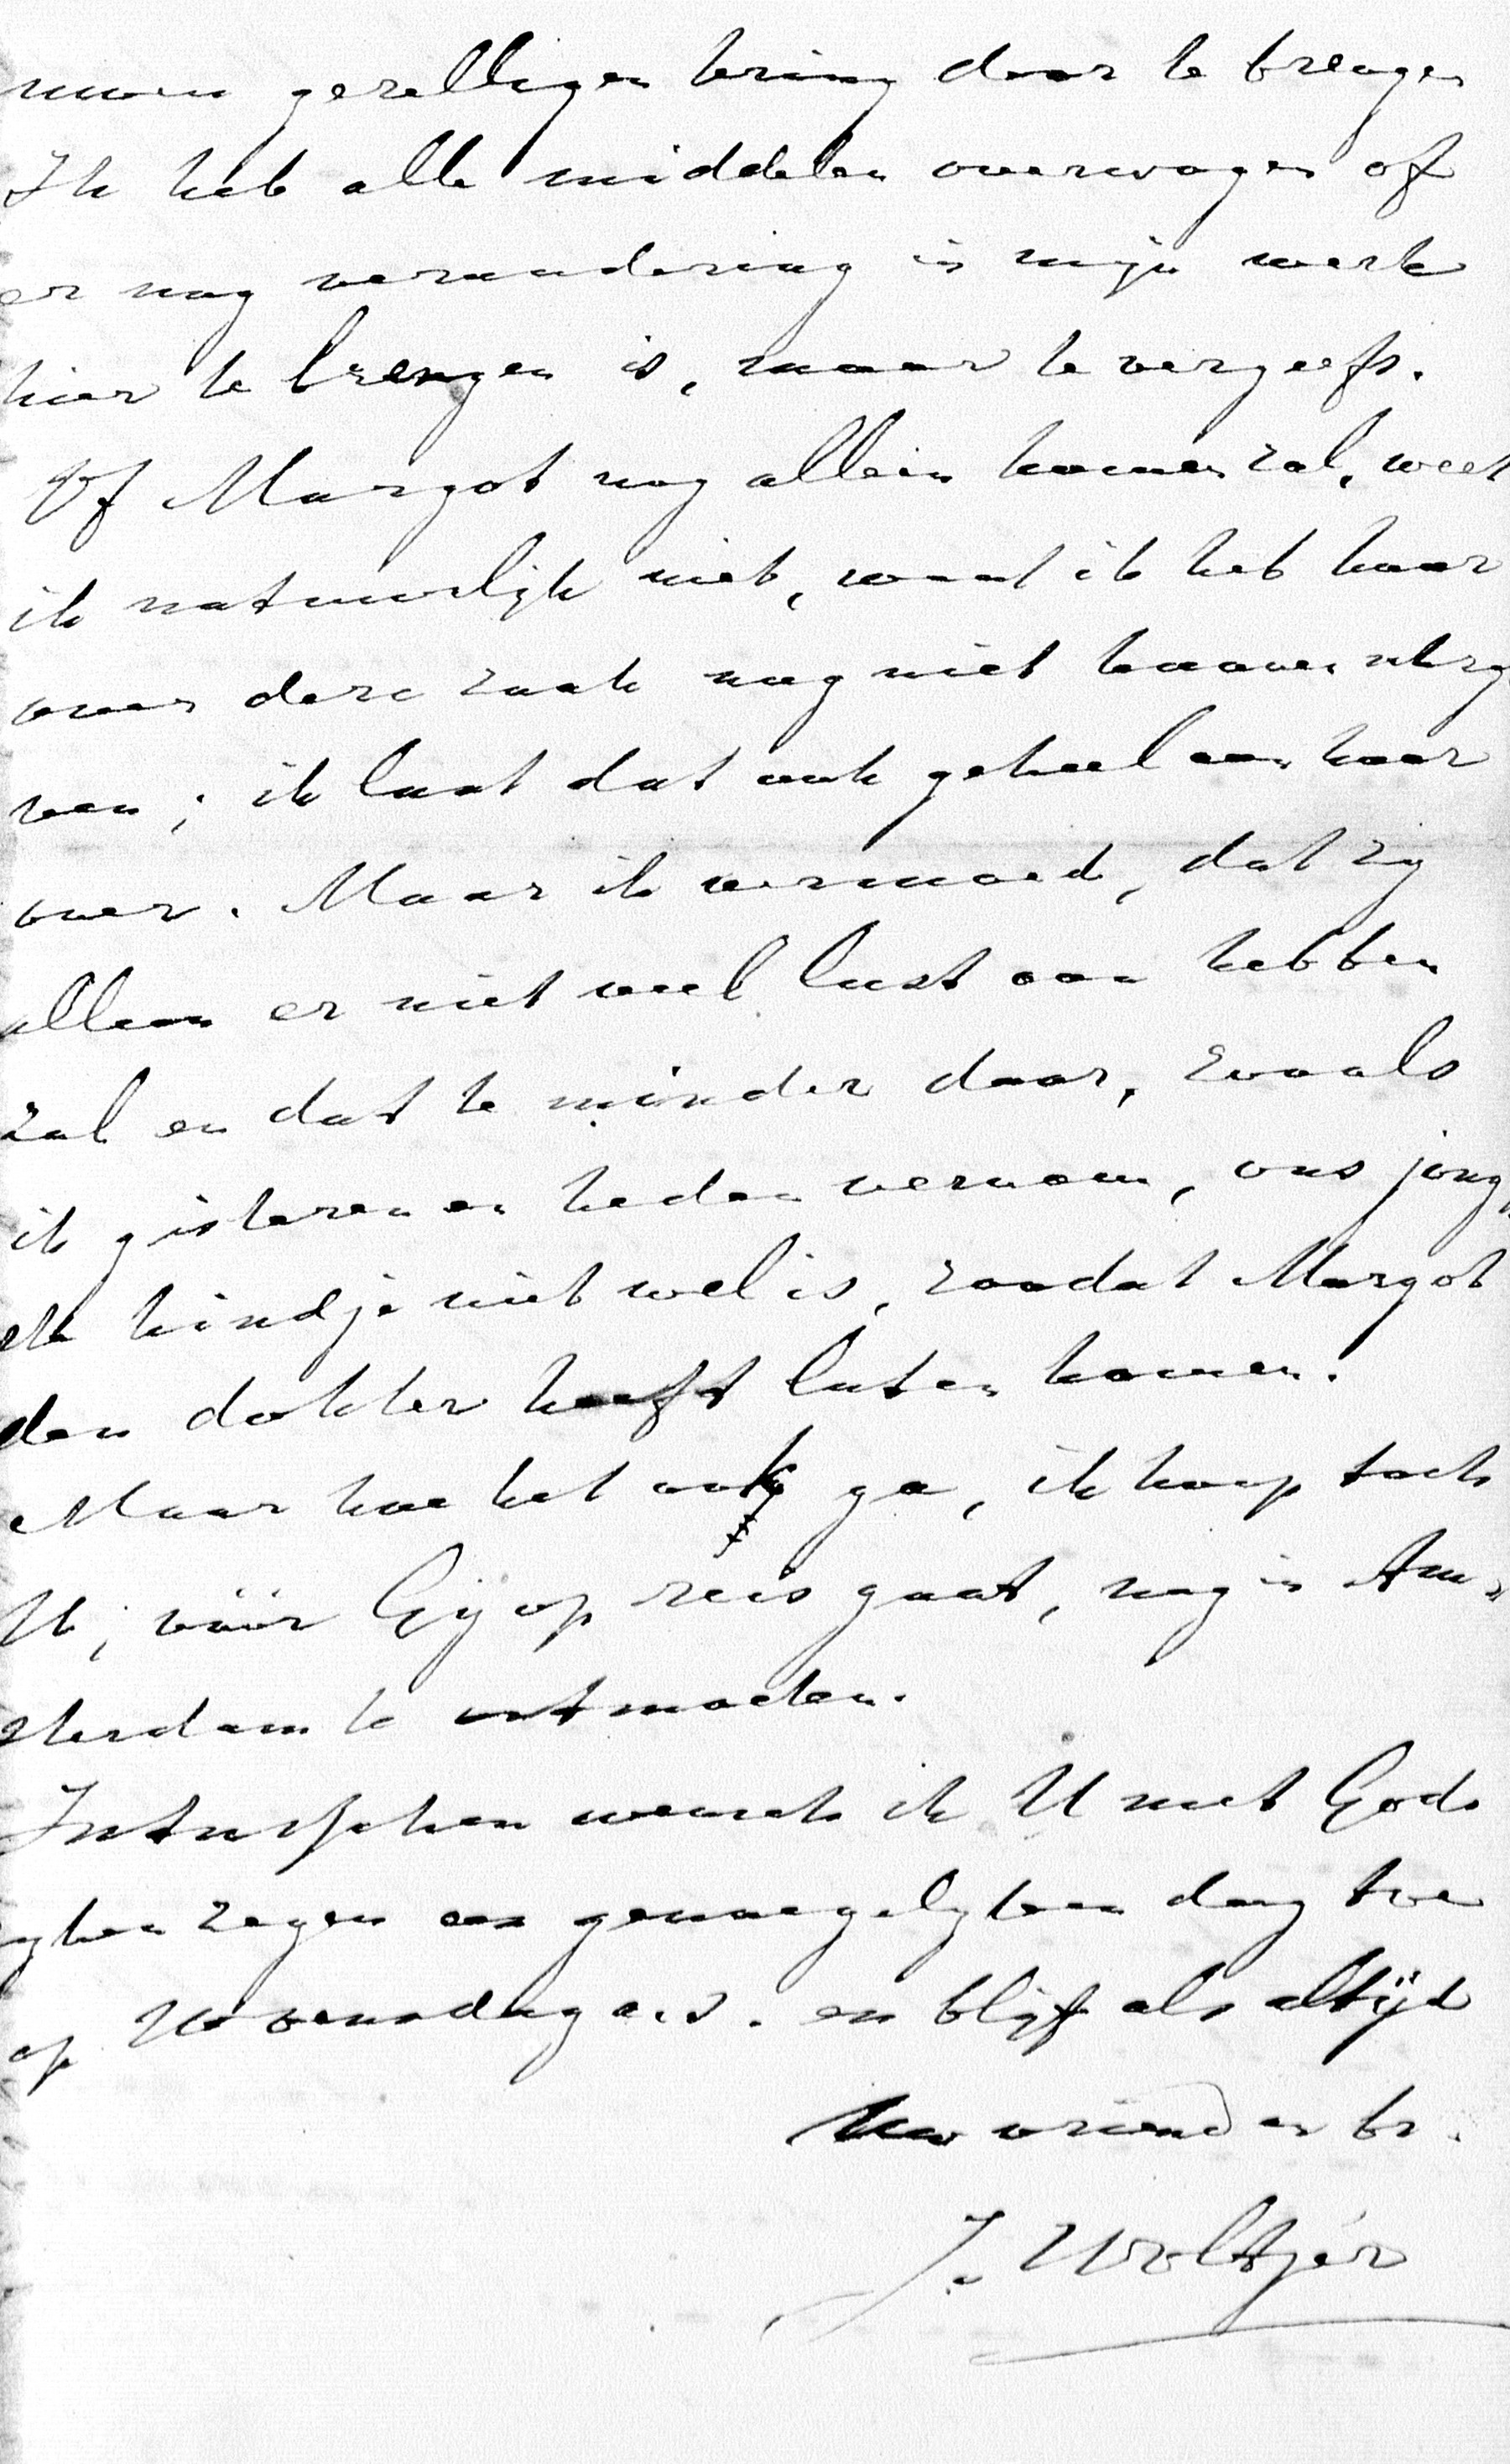 uwen gezelligen kring door te brengen
Ik heb alle middelen overwogen of
er nog verandering in mijn werk
hier te brengen is, maar te vergeefs.
Of Margot nog alleen komen zal, weet
ik natuurlijk niet, want ik heb haar
over deze zaak nog niet kunnen schrij
ven; ik laat dat ook geheel aan haar
over. Maar ik vermoed, dat zij
alleen er niet veel lust aan hebben
zal en dat te minder daar, zooals
ik gisteren en heden vernam, ons jong
ste kindje niet wel is, zoodat Margot
den dokter heeft laten komen.
Maar hoe het ook ga, ik hoop toch
U, vóór Gij op reis gaat, nog in Am=
sterdam te ontmoeten.
Intusschen wensch ik U met Gods
rijken zegen een genoegelijken dag toe
op Woensdag a.s. en blijf als altijd
Uw vriend en br.
J. Woltjer